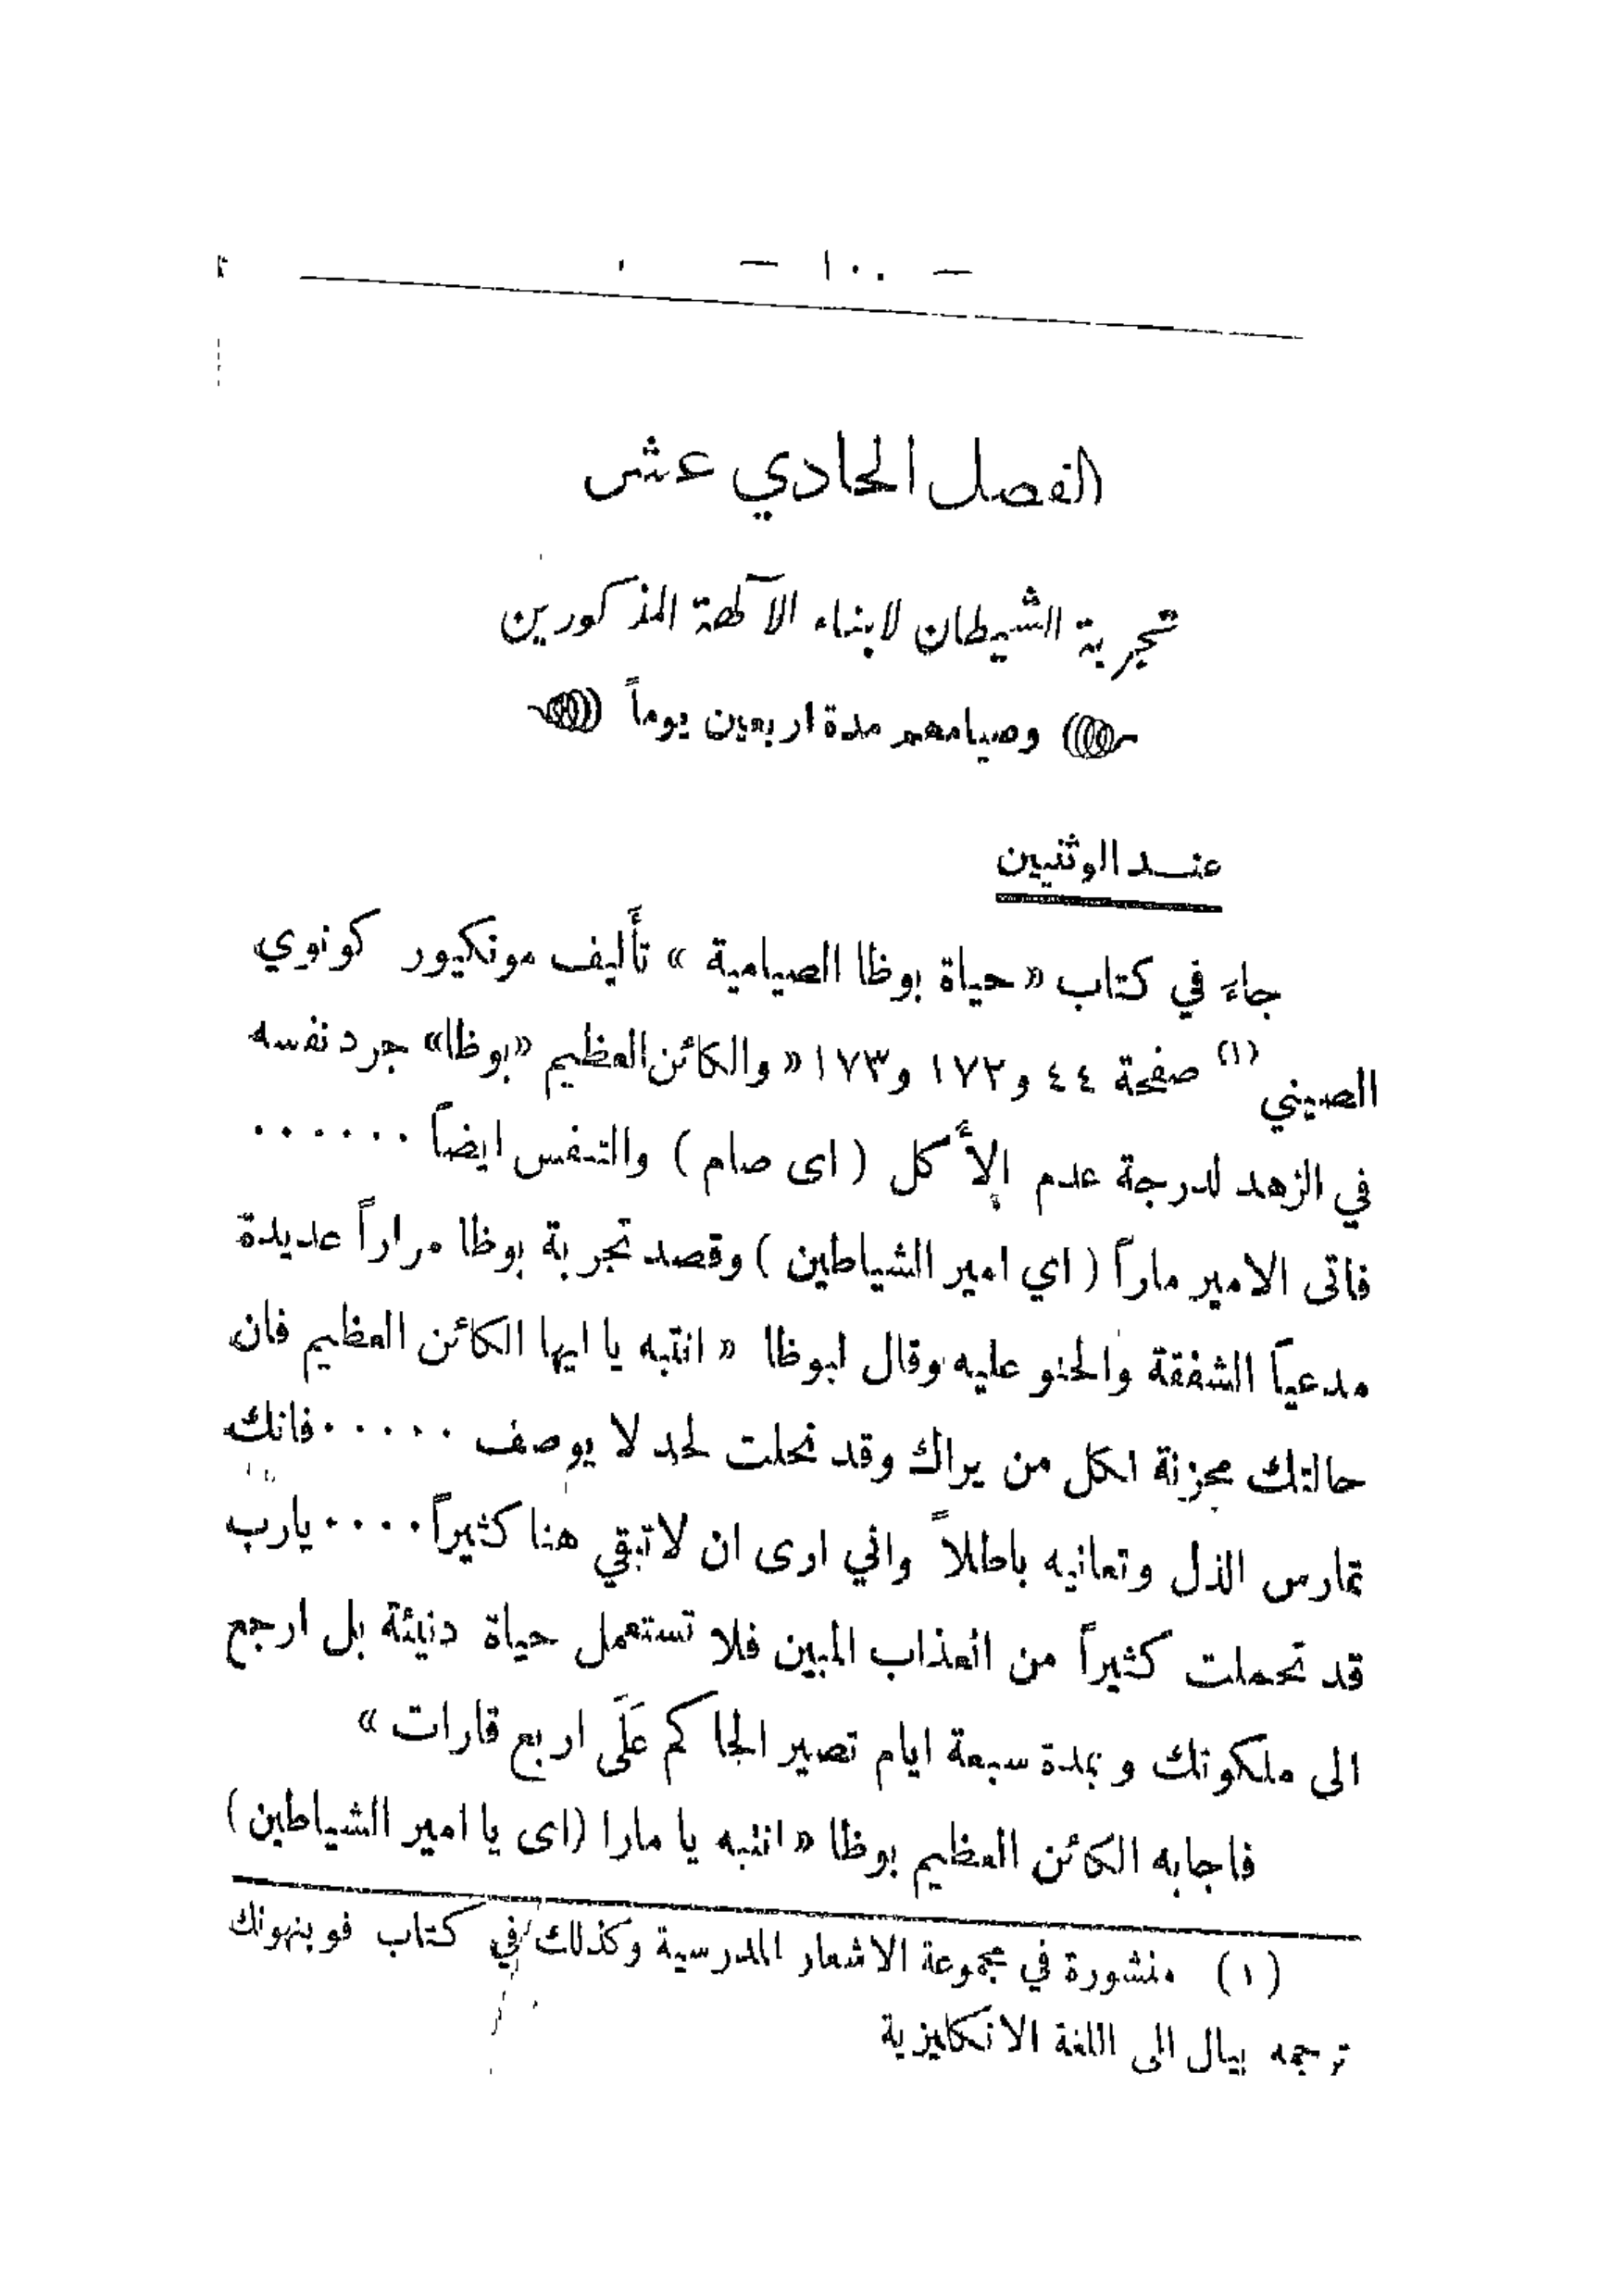 — ١٠٠ —
الفصل الحادي عشر
تجربة الشيطان لابناء الآلهة المذكورين
وصيامهم مدة اربعين يوماً
عند الوثنيين
جاءَ في كتاب « حياة بوظا الصيامية » تأليف مونكيور كونوي
الصيني (١) صفحة ٤٤ و١٧٢ و١٧٣ « والكائن العظيم «بوظا» جرد نفسه
في الزهد لدرجة عدم الأكل ( اى صام ) والتنفس ايضاً ......
فاتى الامير ماراً ( اي امير الشياطين ) وقصد تجربة بوظا مراراً عديدة
مدعياً الشفقة والحنو عليه وقال لبوظا « انتبه يا ايها الكائن العظيم فان
حالتك محزنة لكل من يراك وقد نحلت لحد لا يوصف ..... فانك
تمارس الذل وتعانيه باطلاً واني ارى ان لا تبقي هنا كثيراً .... يارب
قد تحملت كثيراً من العذاب المبين فلا تستعمل حياة دنيئة بل ارجع
الى ملكوتك وبمدة سبعة ايام تصير الحاكم عَلَى اربع قارات »
فاجابه الكائن العظيم بوظا « انتبه يا مارا (اى يا امير الشياطين )
(١) منشورة في مجموعة الاشعار المدرسية وكذلك في كتاب فوبنهونك
ترجمه بيال الى اللغة الانكليزية